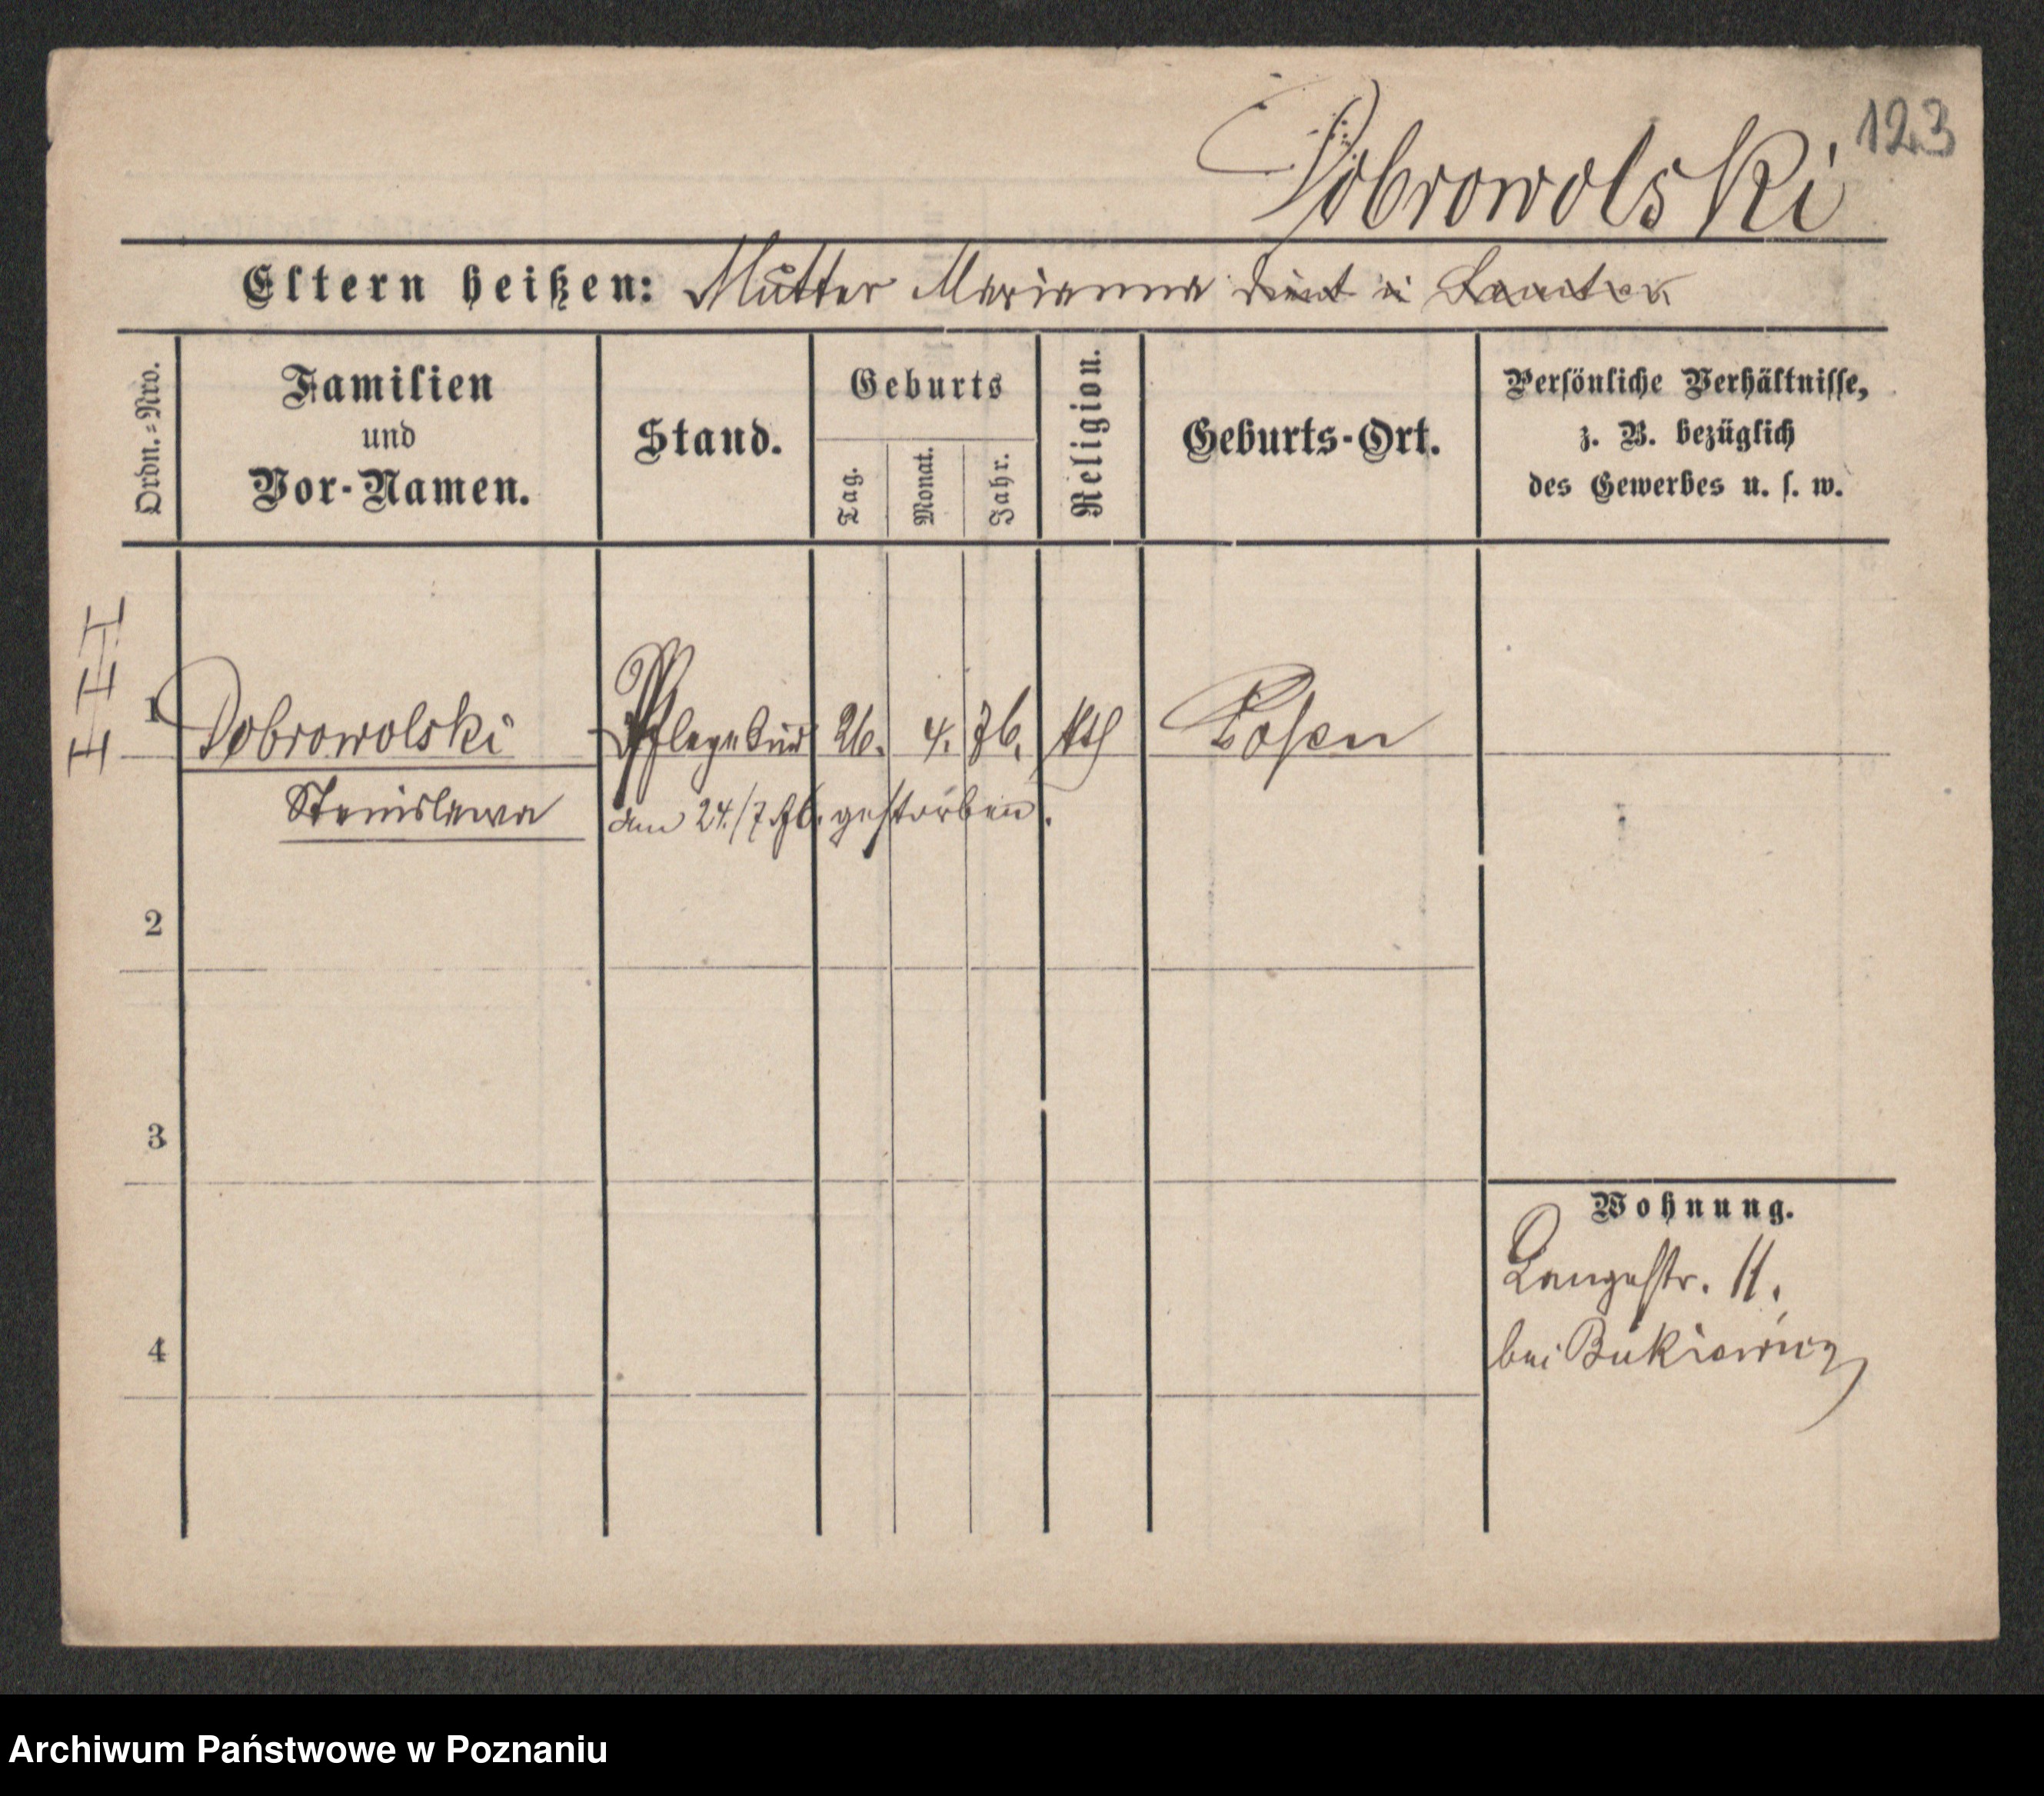 123
Dobrowolski
Eltern heißen: Mutter Marianna dient in
Ordn.-Nro.
Familien
und
Vor-Namen.
Stand.
Geburts
Tag.
Monat.
Jahr.
Religion.
Geburts-Ort.
Persönliche Verhältnisse,
z. B. bezüglich
des Gewerbes u. s. w.
1 Dobrowolski Pflegekind 26. 4. 76. kth Posen
Stanislawa den 24./7 76. gestorben.
2
3
4
Wohnung.
Langestr. 11.
bei Bukiewicz
Archiwum Państwowe w Poznaniu